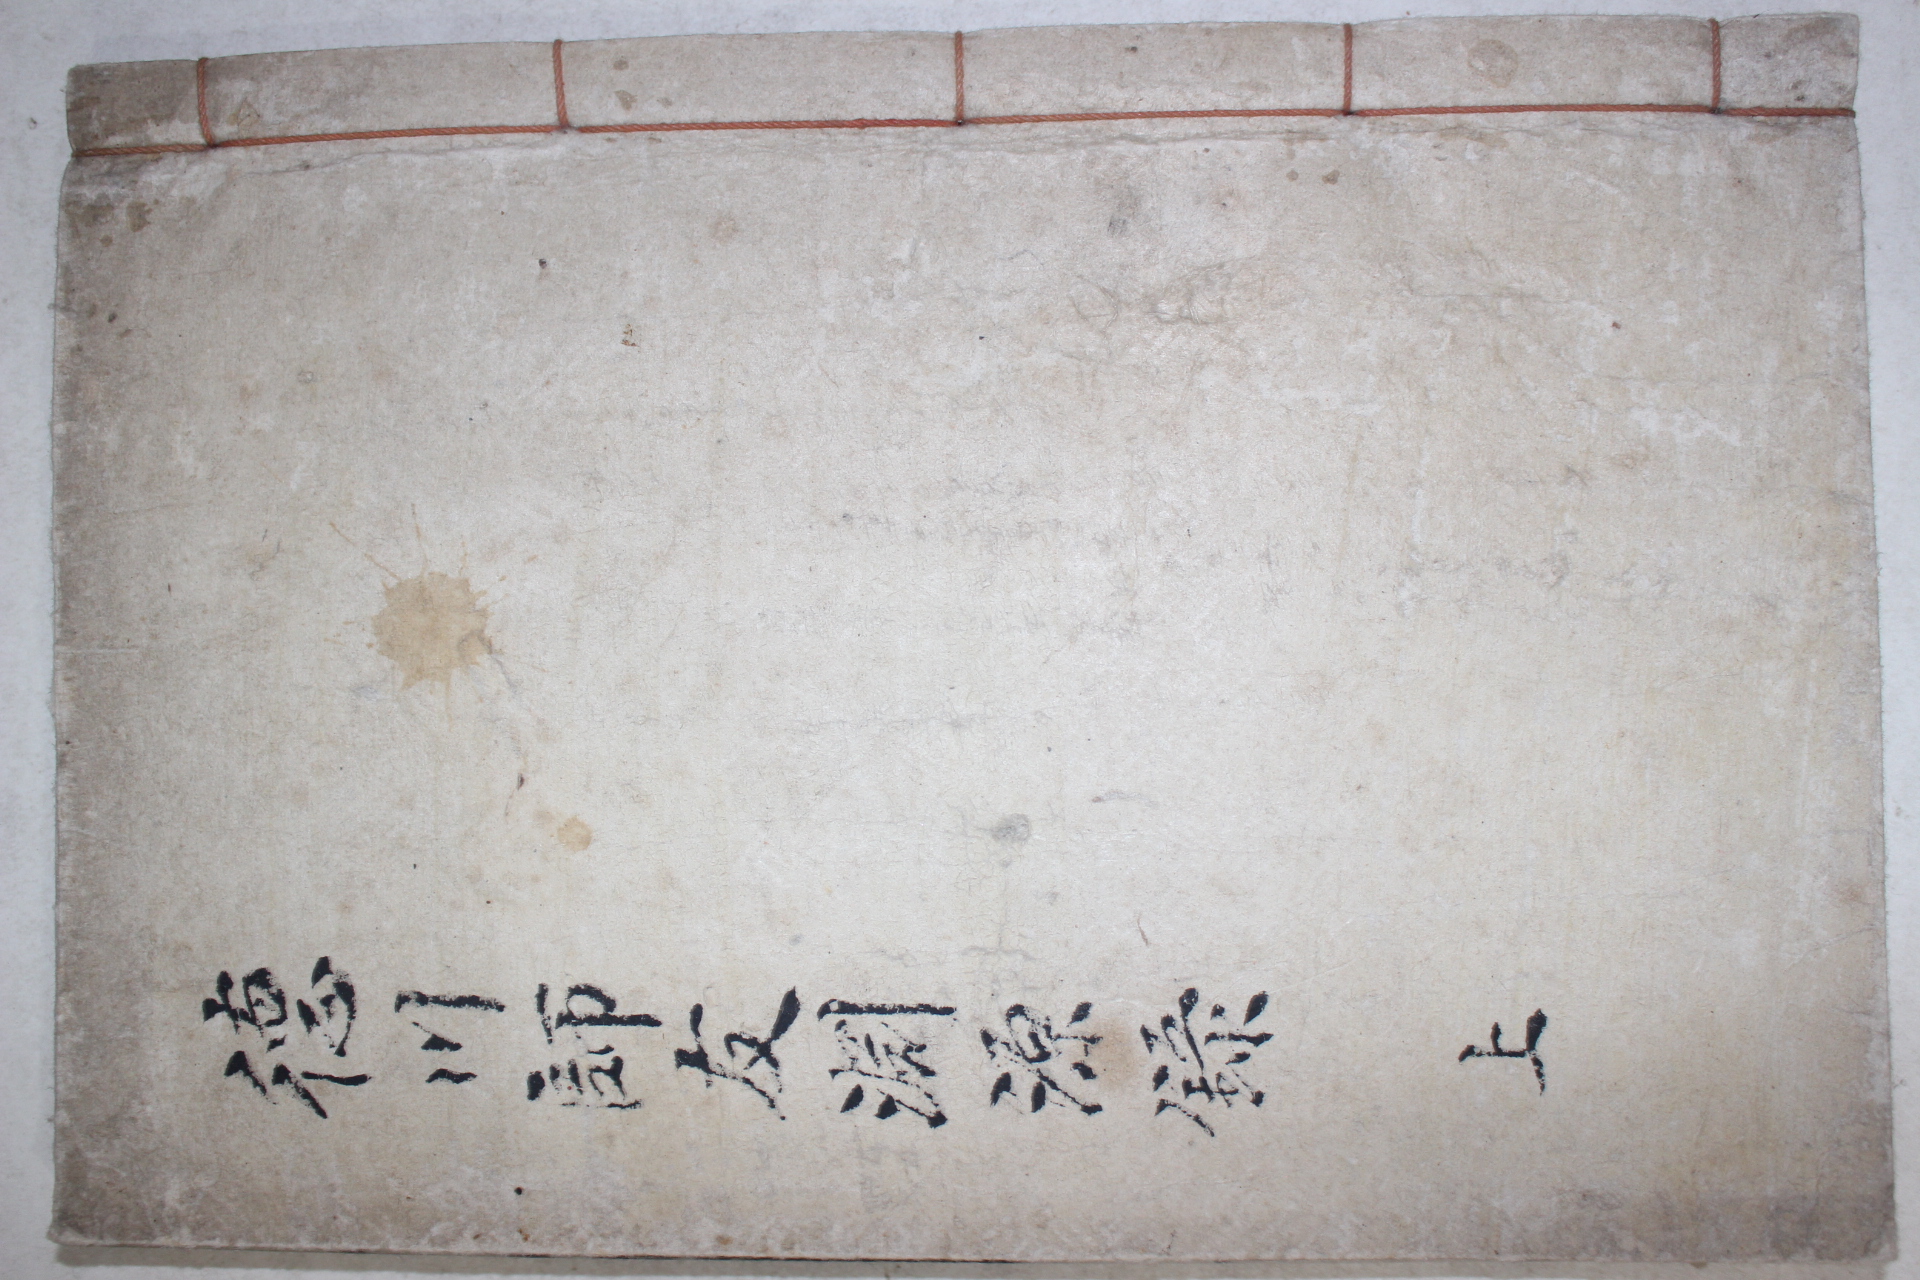 德川師友淵源錄
上